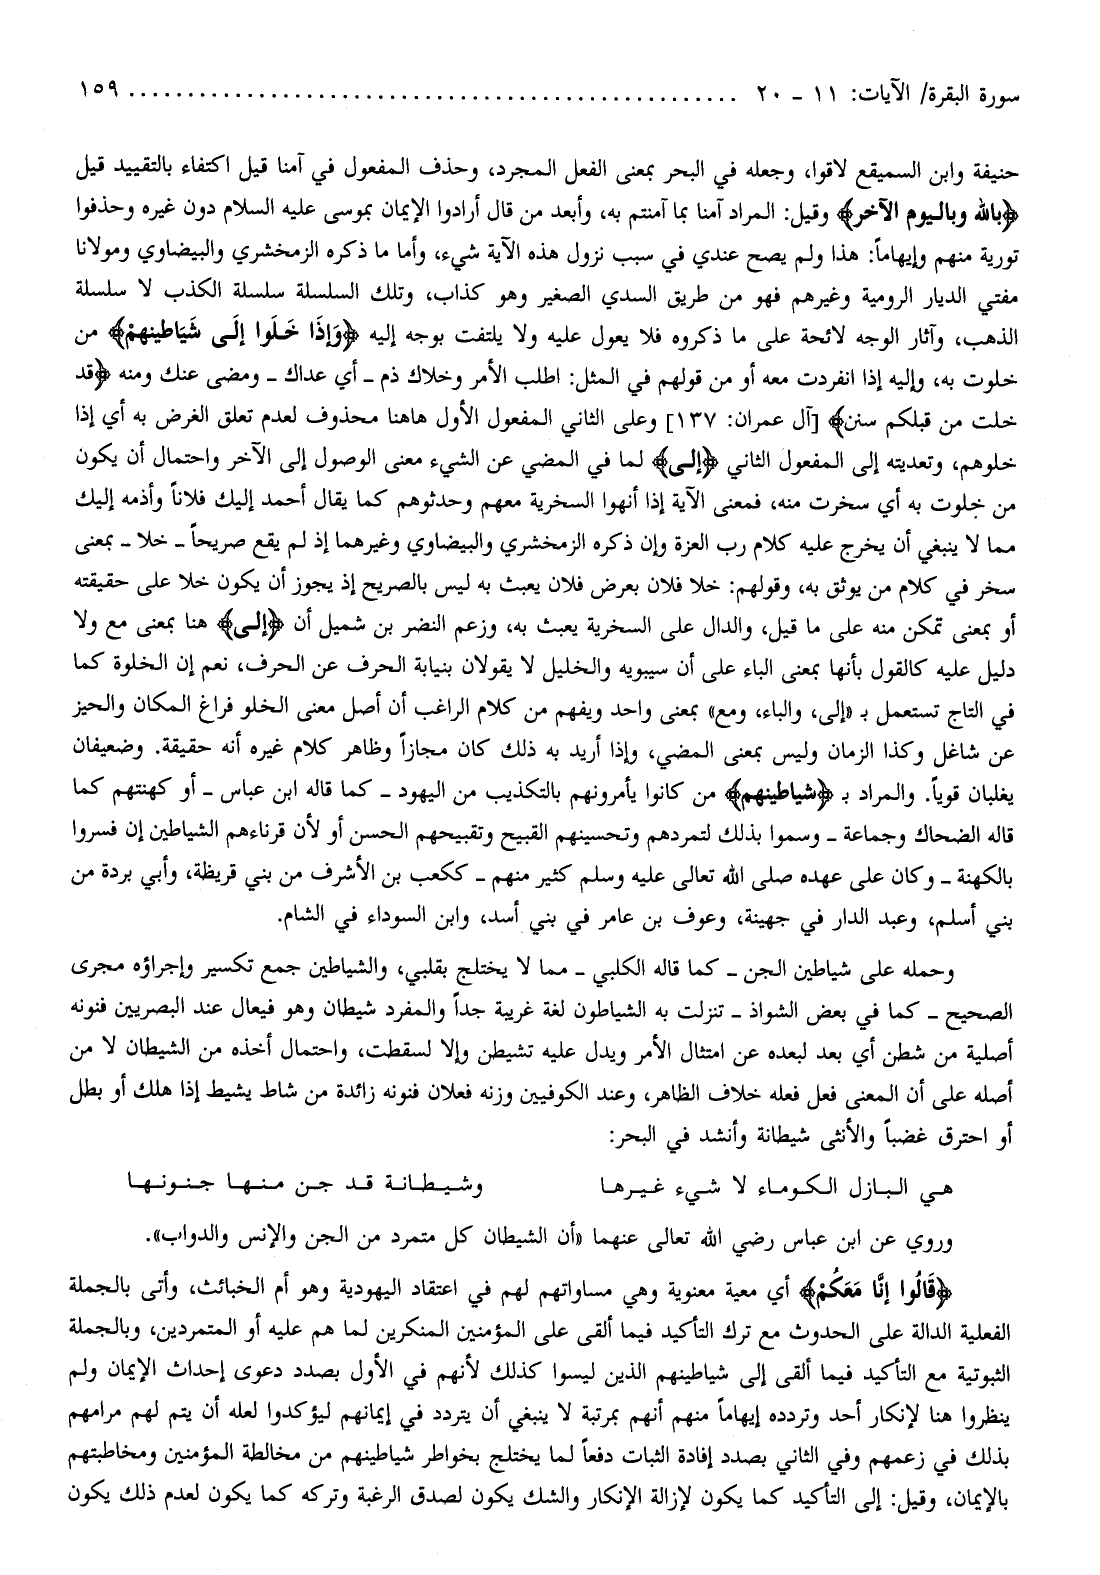 سورة البقرة/ الآيات: ١١ ـ ٢٠ .................................................... ١٥٩
حنيفة وابن السميقع لاقوا، وجعله في البحر بمعنى الفعل المجرد، وحذف المفعول في آمنا قيل اكتفاء بالتقييد قيل
﴿بالله وباليوم الآخر﴾ وقيل: المراد آمنا بما آمنتم به، وأبعد من قال أرادوا الإيمان بموسى عليه السلام دون غيره وحذفوا
تورية منهم وإيهاماً: هذا ولم يصح عندي في سبب نزول هذه الآية شيء، وأما ما ذكره الزمخشري والبيضاوي ومولانا
مفتي الديار الرومية وغيرهم فهو من طريق السدي الصغير وهو كذاب، وتلك السلسلة سلسلة الكذب لا سلسلة
الذهب، وآثار الوجه لائحة على ما ذكروه فلا يعول عليه ولا يلتفت بوجه إليه ﴿وَإِذَا خَلَوا إِلَى شَيَاطِينِهِمْ﴾ من
خلوت به، وإليه إذا انفردت معه أو من قولهم في المثل: اطلب الأمر وخلاك ذم ـ أي عداك ـ ومضى عنك ومنه ﴿قد
خلت من قبلكم سنن﴾ [آل عمران: ١٣٧] وعلى الثاني المفعول الأول هاهنا محذوف لعدم تعلق الغرض به أي إذا
خلوهم، وتعديته إلى المفعول الثاني ﴿إلى﴾ لما في المضي عن الشيء معنى الوصول إلى الآخر واحتمال أن يكون
من خلوت به أي سخرت منه، فمعنى الآية إذا أنهوا السخرية معهم وحدثوهم كما يقال أحمد إليك فلاناً وأذمه إليك
مما لا ينبغي أن يخرج عليه كلام رب العزة وإن ذكره الزمخشري والبيضاوي وغيرهما إذ لم يقع صريحاً ـ خلا ـ بمعنى
سخر في كلام من يوثق به، وقولهم: خلا فلان بعرض فلان يعبث به ليس بالصريح إذ يجوز أن يكون خلا على حقيقته
أو بمعنى تمكن منه على ما قيل، والدال على السخرية يعبث به، وزعم النضر بن شميل أن ﴿إلى﴾ هنا بمعنى مع ولا
دليل عليه كالقول بأنها بمعنى الباء على أن سيبويه والخليل لا يقولان بنيابة الحرف عن الحرف، نعم إن الخلوة كما
في التاج تستعمل بـ «إلى، والباء، ومع» بمعنى واحد ويفهم من كلام الراغب أن أصل معنى الخلو فراغ المكان والحيز
عن شاغل وكذا الزمان وليس بمعنى المضي، وإذا أريد به ذلك كان مجازاً وظاهر كلام غيره أنه حقيقة. وضعيفان
يغلبان قوياً. والمراد بـ ﴿شياطينهم﴾ من كانوا يأمرونهم بالتكذيب من اليهود ـ كما قاله ابن عباس ـ أو كهنتهم كما
قاله الضحاك وجماعة ـ وسموا بذلك لتمردهم وتحسينهم القبيح وتقبيحهم الحسن أو لأن قرناءهم الشياطين إن فسروا
بالكهنة ـ وكان على عهده صلى الله تعالى عليه وسلم كثير منهم ـ ككعب بن الأشرف من بني قريظة، وأبي بردة من
بني أسلم، وعبد الدار في جهينة، وعوف بن عامر في بني أسد، وابن السوداء في الشام.
وحمله على شياطين الجن ـ كما قاله الكلبي ـ مما لا يختلج بقلبي، والشياطين جمع تكسير وإجراؤه مجرى
الصحيح ـ كما في بعض الشواذ ـ تنزلت به الشياطون لغة غريبة جداً والمفرد شيطان وهو فيعال عند البصريين فنونه
أصلية من شطن أي بعد لبعده عن امتثال الأمر ويدل عليه تشيطن وإلا لسقطت، واحتمال أخذه من الشيطان لا من
أصله على أن المعنى فعل فعله خلاف الظاهر، وعند الكوفيين وزنه فعلان فنونه زائدة من شاط يشيط إذا هلك أو بطل
أو احترق غضباً والأنثى شيطانة وأنشد في البحر:
هي البازل الكوماء لا شيء غيرها وشيطانة قد جن منها جنونها
وروي عن ابن عباس رضي الله تعالى عنهما «أن الشيطان كل متمرد من الجن والإنس والدواب».
﴿قَالُوا إِنَّا مَعَكُمْ﴾ أي معية معنوية وهي مساواتهم لهم في اعتقاد اليهودية وهو أم الخبائث، وأتى بالجملة
الفعلية الدالة على الحدوث مع ترك التأكيد فيما ألقى على المؤمنين المنكرين لما هم عليه أو المتمردين، وبالجملة
الثبوتية مع التأكيد فيما ألقى إلى شياطينهم الذين ليسوا كذلك لأنهم في الأول بصدد دعوى إحداث الإيمان ولم
ينظروا هنا لإنكار أحد وتردده إيهاماً منهم أنهم بمرتبة لا ينبغي أن يتردد في إيمانهم ليؤكدوا لعله أن يتم لهم مرامهم
بذلك في زعمهم وفي الثاني بصدد إفادة الثبات دفعاً لما يختلج بخواطر شياطينهم من مخالطة المؤمنين ومخاطبتهم
بالإيمان، وقيل: إلى التأكيد كما يكون لإزالة الإنكار والشك يكون لصدق الرغبة وتركه كما يكون لعدم ذلك يكون